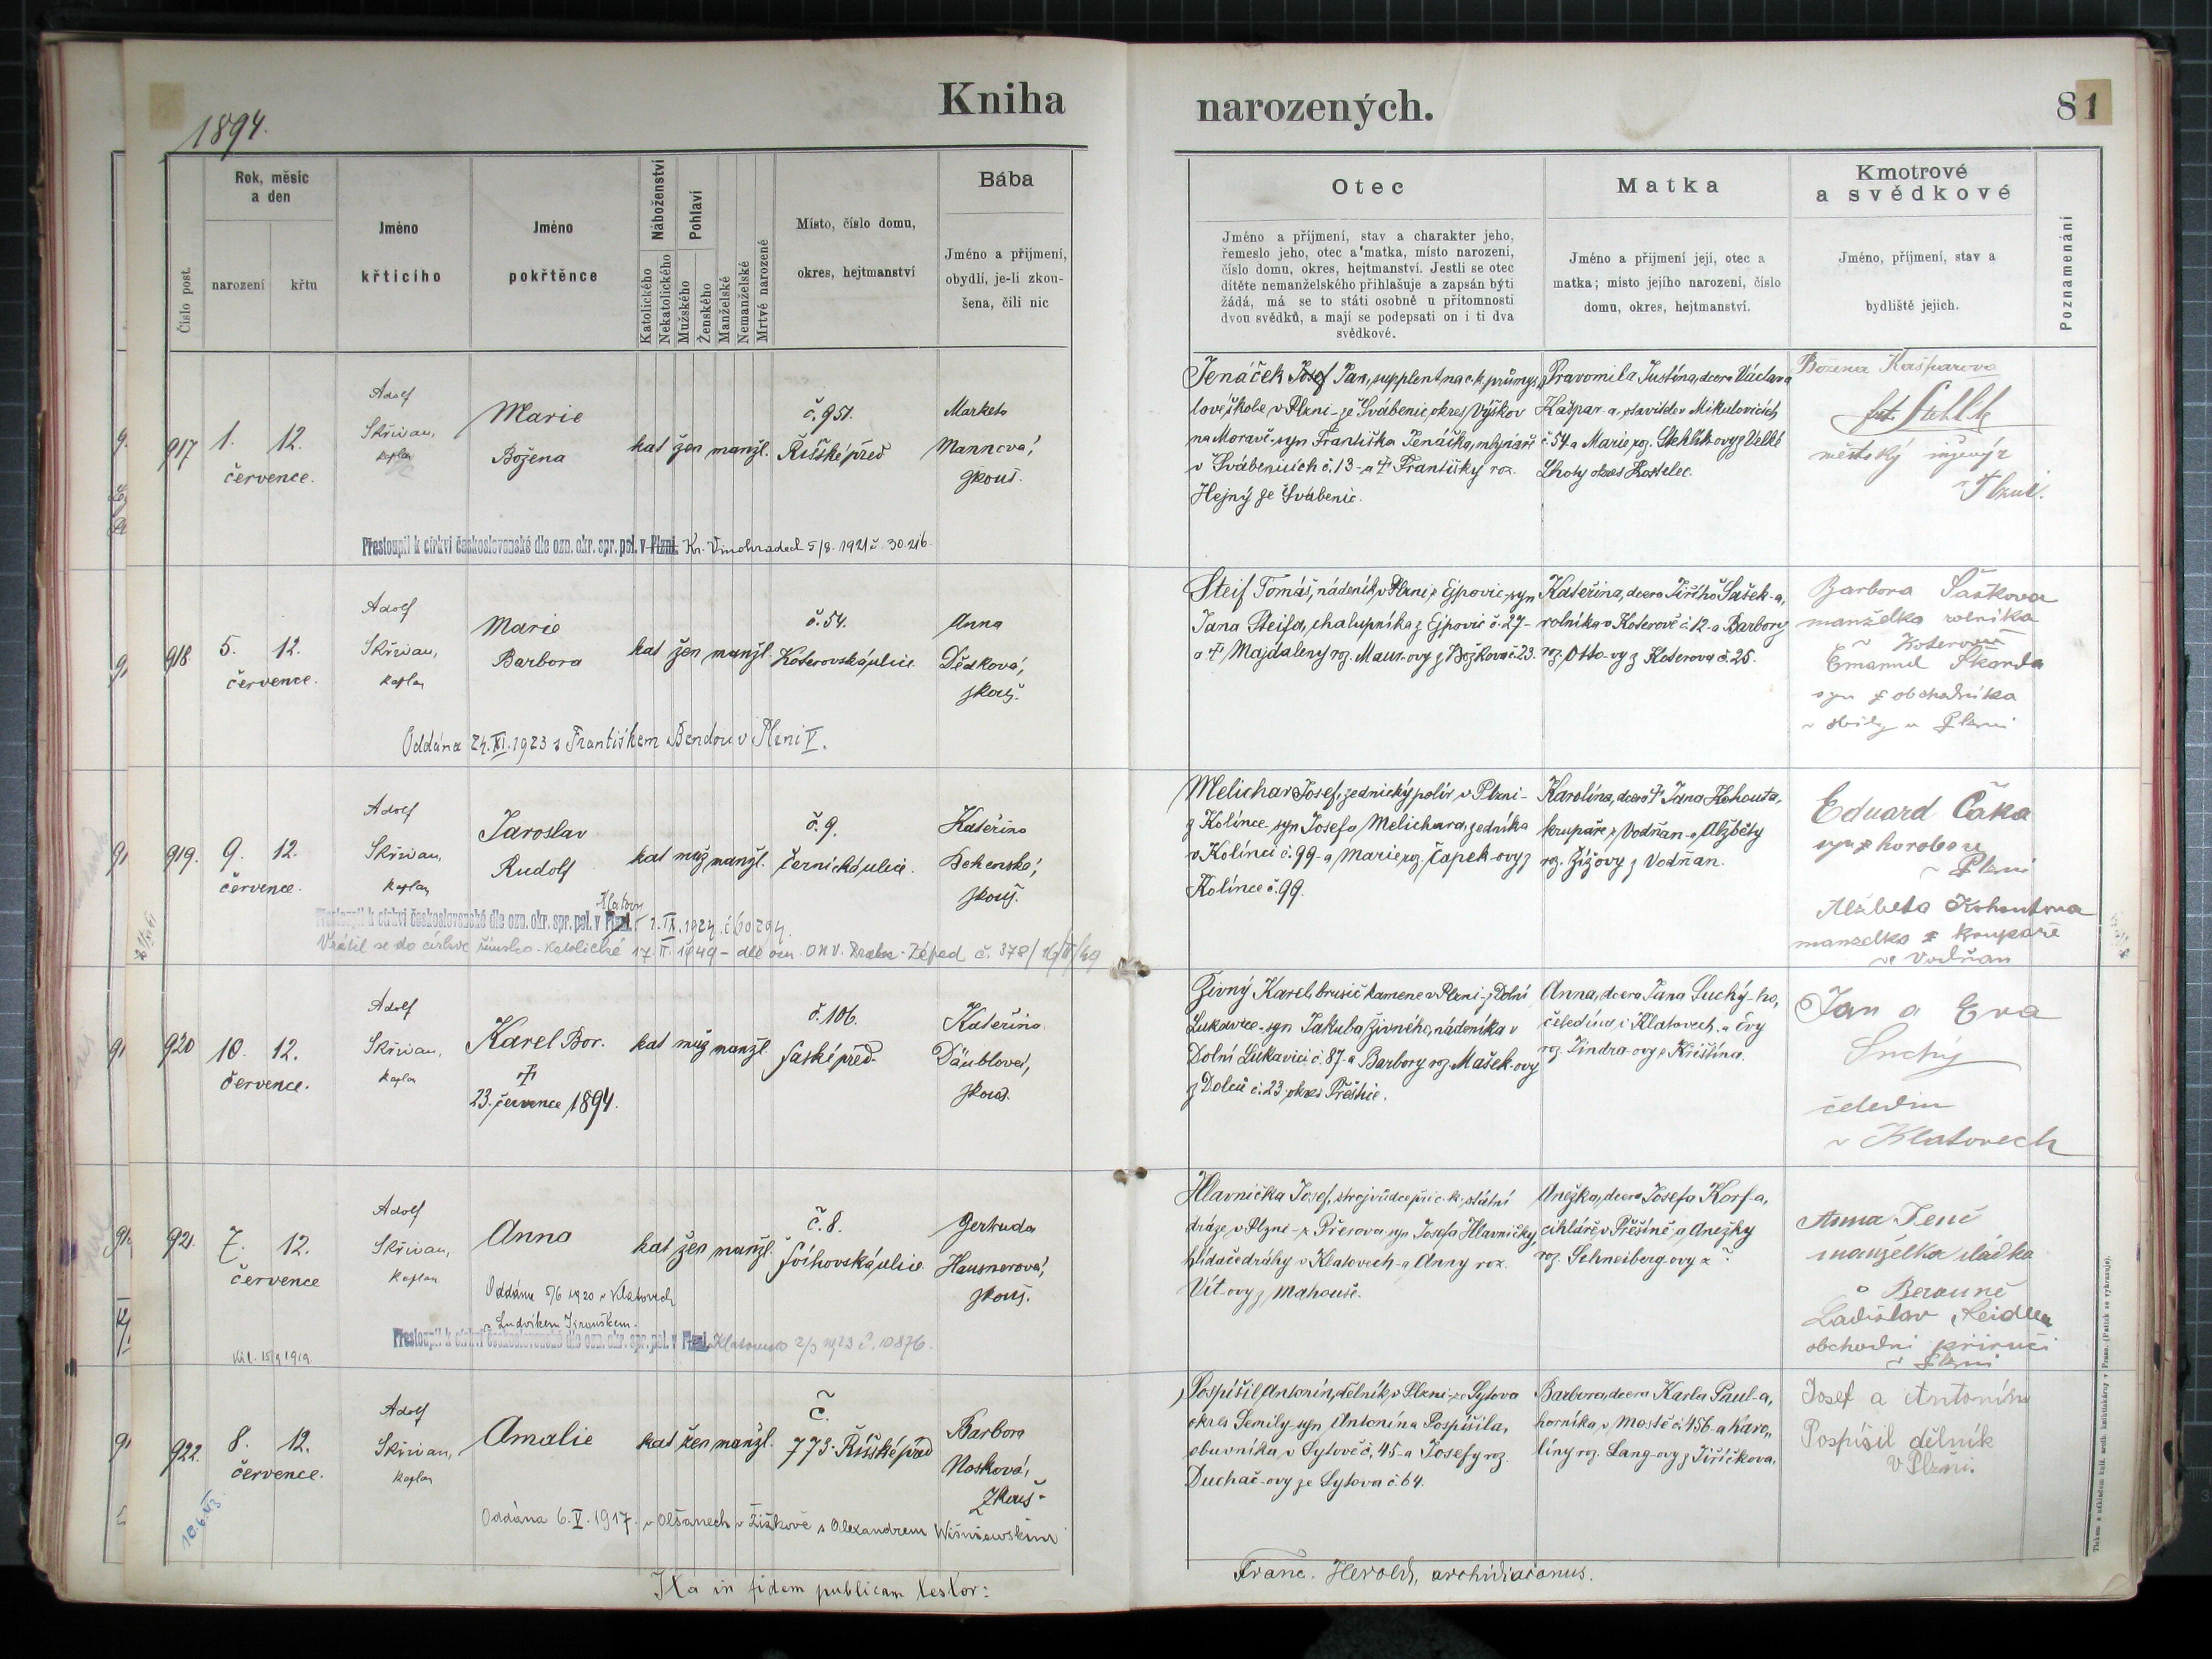 Kniha
narozených.
81
1894.
Číslo post.
Rok, měsíc
a den
narození
křtu
Jméno
křticího
Jméno
pokřtěnce
Náboženství
Katolického
Nekatolického
Pohlaví
Mužského
Ženského
Manželské
Nemanželské
Mrtvě narozené
Místo, číslo domu,
okres, hejtmanství
Bába
Jméno a přijmení,
obydlí, je-li zkou-
šena, čili nic
Otec
Jméno a příjmení, stav a charakter jeho,
řemeslo jeho, otec a matka, místo narození,
číslo domu, okres, hejtmanství. Jestli se otec
dítěte nemanželského přihlašuje a zapsán býti
žádá, má se to státi osobně u přítomnosti
dvou svědků, a mají se podepsati on i ti dva
svědkové.
Matka
Jméno a příjmení její, otec a
matka; místo jejího narození, číslo
domu, okres, hejtmanství.
Kmotrové
a svědkové
Jméno, příjmení, stav a
bydliště jejich.
Poznamenání
917
1. 12.
července.
Adolf
Skřivan,
kaplan
Marie
Božena
kat žen manžl.
č. 951.
Říšské před
Marketa
Mannova,
zkouš.
Jenáček Josef Jan, supplent na c. k. průmys-
lové škole v Plzni - ze Švábenic, okres Vyškov
na Moravě - syn Františka Jenáčka, mlynáře
v Švábenicích č. 13 - a † Františky roz.
Hejný ze Švábenic.
Pravomila Justina, dcera Václava
Kašpar-a, stavitele v Mikulovicích
č. 54 a Marie roz. Stehlík-ovy z Velké
Lhoty okres Kostelec.
Božena Kašparova
městský inženýr
v Plzni.
Přestoupil k církvi československé dle ozn. okr. spr. pol. v Plzni. Kr. Vinohradech 5/8. 1921 č. 30.216.
918
5. 12.
července.
Adolf
Skřivan,
kaplan
Marie
Barbora
kat žen manžl.
č. 54.
Koterovská ulice.
Anna
Dědková,
zkouš.
Steif Tomáš, nádeník v Plzni z Ejpovic - syn
Jana Steifa, chalupníka z Ejpovic č. 27 -
a † Majdaleny roz. Maur-ovy z Božkova č. 23.
Kateřina, dcera Jiřího Šašek-a,
rolníka v Koterově č. 12 - a Barbory
roz. Otto-vy z Koterova č. 25.
Barbora Šaškova
manželka rolníka
v Koterově
Emanuel Škarda
syn obchodníka
v Plzni
Oddána 24. XI. 1923 s Františkem Bendou v Plzni V.
919.
9. 12.
července.
Adolf
Skřivan,
kaplan
Jaroslav
Rudolf
kat muž manžl.
č. 9.
Černická ulice.
Kateřina
zkouš.
Melichar Josef, zednický polír v Plzni -
z Kolince - syn Josefa Melichara, zedníka
v Kolinci č. 99 - a Marie roz. Čapek-ovy z
Kolince č. 99.
Karolina, dcera † Jana Kohouta,
krupaře z Vodňan - a Alžběty
roz. Žížovy z Vodňan.
Eduard Čáka
v Plzni
Alžběta Kohoutova
manželka krupaře
ve Vodňan
Klatovy
Přestoupil k církvi československé dle ozn. okr. spr. pol. v Plzni. 2. IX. 1924. č. 60 294.
Vrátil se do církve římsko-katolické 17. II. 1949 - dle ozn. ONV. Západ č. 378/
920
10. 12.
července.
Adolf
Skřivan,
kaplan
Karel Bor.
†
23. července 1894.
kat muž manžl.
č. 106.
Saské před.
Kateřina
Däublova,
zkouš.
Živný Karel, brusič kamene v Plzni - z Dolní
Lukavice - syn Jakuba Živného, nádeníka v
Dolní Lukavici č. 87 - a Barbory roz. Mašek-ovy
z Dolců č. 23 okres Přeštic.
Anna, dcera Jana Suchý-ho,
čeledína v Klatovech - a Evy
roz. Jindra-ovy z Křištína.
Jan a Eva
Suchý
čeledín
v Klatovech
921.
7. 12.
července
Adolf
Skřivan,
kaplan
Anna
kat žen manžl.
č. 8.
Švihovská ulice.
Gertruda
Hausnerova,
zkouš.
Hlavnička Josef, strojvůdce při c. k. státní
dráze v Plzni - z Přerova syn Josefa Hlavničky,
hlídače dráhy v Klatovech - a Anny roz.
Vít-ovy z Mahouše.
Anežka, dcera Josefa Korf-a,
cihláře v Přešíně - a Anežky
roz. Schneiberg-ovy z ?
Anna Tenč
manželka
v Berouně
Ladislav
obchodní příručí
v Plzni
Oddána 5/6 1920 v Klatovech
s Ludvíkem Jirouškem.
Přestoupil k církvi československé dle ozn. okr. spr. pol. v Plzni. Klatovsko 2/3 1923 č. 10876.
15/9 1919.
922.
8. 12.
července.
Adolf
Skřivan,
kaplan
Amalie
kat žen manžl.
č.
773. Říšské před
Barbora
Nosková,
Zkouš.
Pospíšil Antonín, dělník v Plzni - ze Sytova
okres Semily - syn Antonína Pospíšila,
obuvníka v Sytově č. 45 - a Josefy roz.
Duchač-ovy ze Sytova č. 64.
Barbora, dcera Karla Paul-a,
horníka v Mostě č. 456 - a Karo-
líny roz. Lang-ovy z Jiříčkova.
Josef a Antonína
Pospíšil dělník
v Plzni.
10.6.43
Oddána 6. V. 1917. v Olšanech v Žižkově s Alexandrem Wiśniewskim
Ita in fidem publicam testor:
Franc. Herold, archidiaconus.